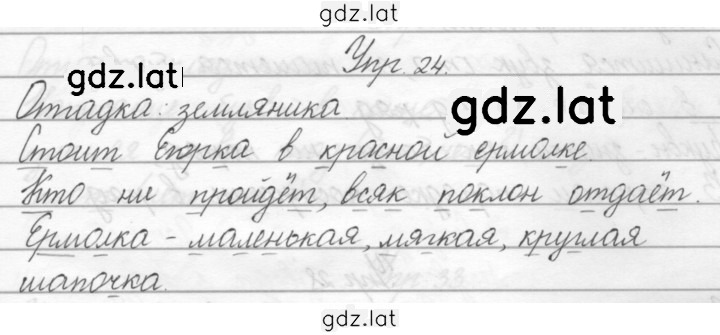 gdz.lat
Упр. 24.
gdz.lat
Отгадка: земляника
gdz.lat
Стоит Егорка в красной ермолке.
Кто ни пройдёт, всяк поклон отдаёт.
Ермолка - маленькая, мягкая, круглая
шапочка.
gdz.lat